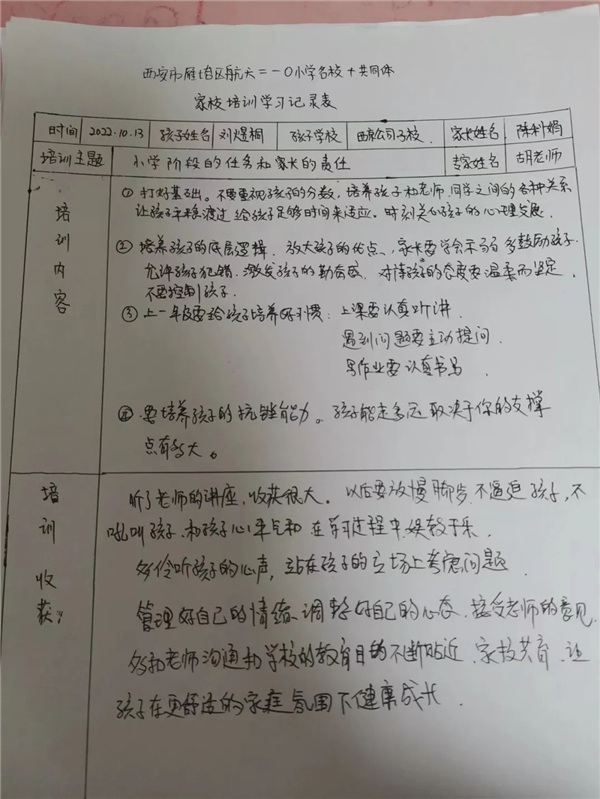 西安市雁塔区航天二一〇小学名校+共同体
家校培训学习记录表
时间 2022.10.13 孩子姓名 刘煜桐 孩子学校 公司子校 家长姓名 陈
培训主题 小学阶段的任务和家长的责任 专家姓名 胡老师
培训内容
① 打好基础。不要重视孩子的分数,培养孩子和老师,同学之间的各种关系
让孩子平稳渡过 给孩子足够时间来适应。时刻关心孩子的心理发展.
② 培养孩子的底层逻辑,放大孩子的优点,家长要学会示弱 多鼓励孩子.
允许孩子犯错.激发孩子的勤奋感,对待孩子的态度要温柔而坚定,
不要控制孩子.
③ 上一年级要给孩子培养好习惯:上课要认真听讲.
遇到问题要主动提问.
写作业要认真书写.
④ 要培养孩子的抗挫能力。孩子能走多远取决于你的支撑
点有多大。
培训收获:
听了老师的讲座,收获很大。以后要放慢脚步,不逼迫孩子,不
吼叫孩子.和孩子心平气和 在学习过程中,娱教于乐.
多伶听孩子的心声,站在孩子的立场上考虑问题.
管理好自己的情绪、调整好自己的心态、接受老师的意见.
多和老师沟通和学校的教育目的不断贴近、家校共育、让
孩子在更舒适的家庭氛围下健康成长.